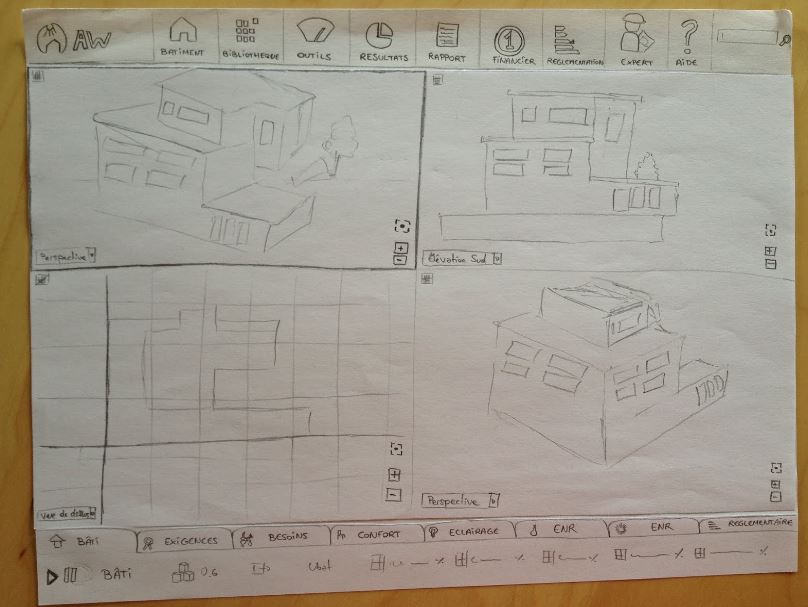 AW
BATIMENT
BIBLIOTHEQUE
OUTILS
RESULTATS
RAPPORT
1
FINANCIER
REGLEMENTATION
EXPERT
?
AIDE
Perspective
Élévation Sud
Vue de dessus
Perspective
BÂTI
EXIGENCES
BESOINS
CONFORT
ECLAIRAGE
ENR
ENR
REGLEMENTAIRE
BÂTI
0,6
Ubat
% % % % %